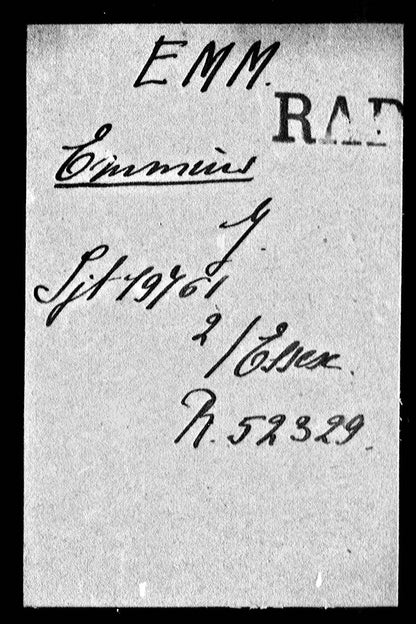 EMM.
RAD
Emmins
Y.
Sjt 19761
2/Essex.
R. 52329.